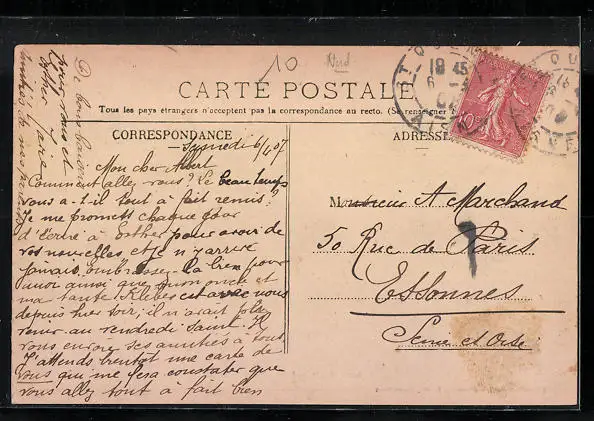 10
Nord
CARTE POSTALE
Tous les pays étrangers n'acceptent pas la correspondance au recto. (Se renseigner
CORRESPONDANCE
ADRESSE
Samedi 6/4 07
Mon cher Albert
Comment allez vous? Le beau temps
vous a-t-il tout à fait remis?
Je me promets chaque jour
d'écrire à Esther pour avoir de
vos nouvelles et je n'y arrive
jamais, embrasse-la bien pour
moi ainsi que mon oncle et
ma tante. est avec nous
depuis hier soir, il n'avait pu
venir au vendredi Saint. Il
vous envoie ses amitiés à tous
J'attends bientôt une carte de
vous qui me fera constater que
vous allez tout à fait bien
De bons baisers
pour vous et
Esther
amitiés de nos parents
Monsieur A Marchand
50 Rue de Paris
Essonnes
Seine et Oise
18 45
6
10